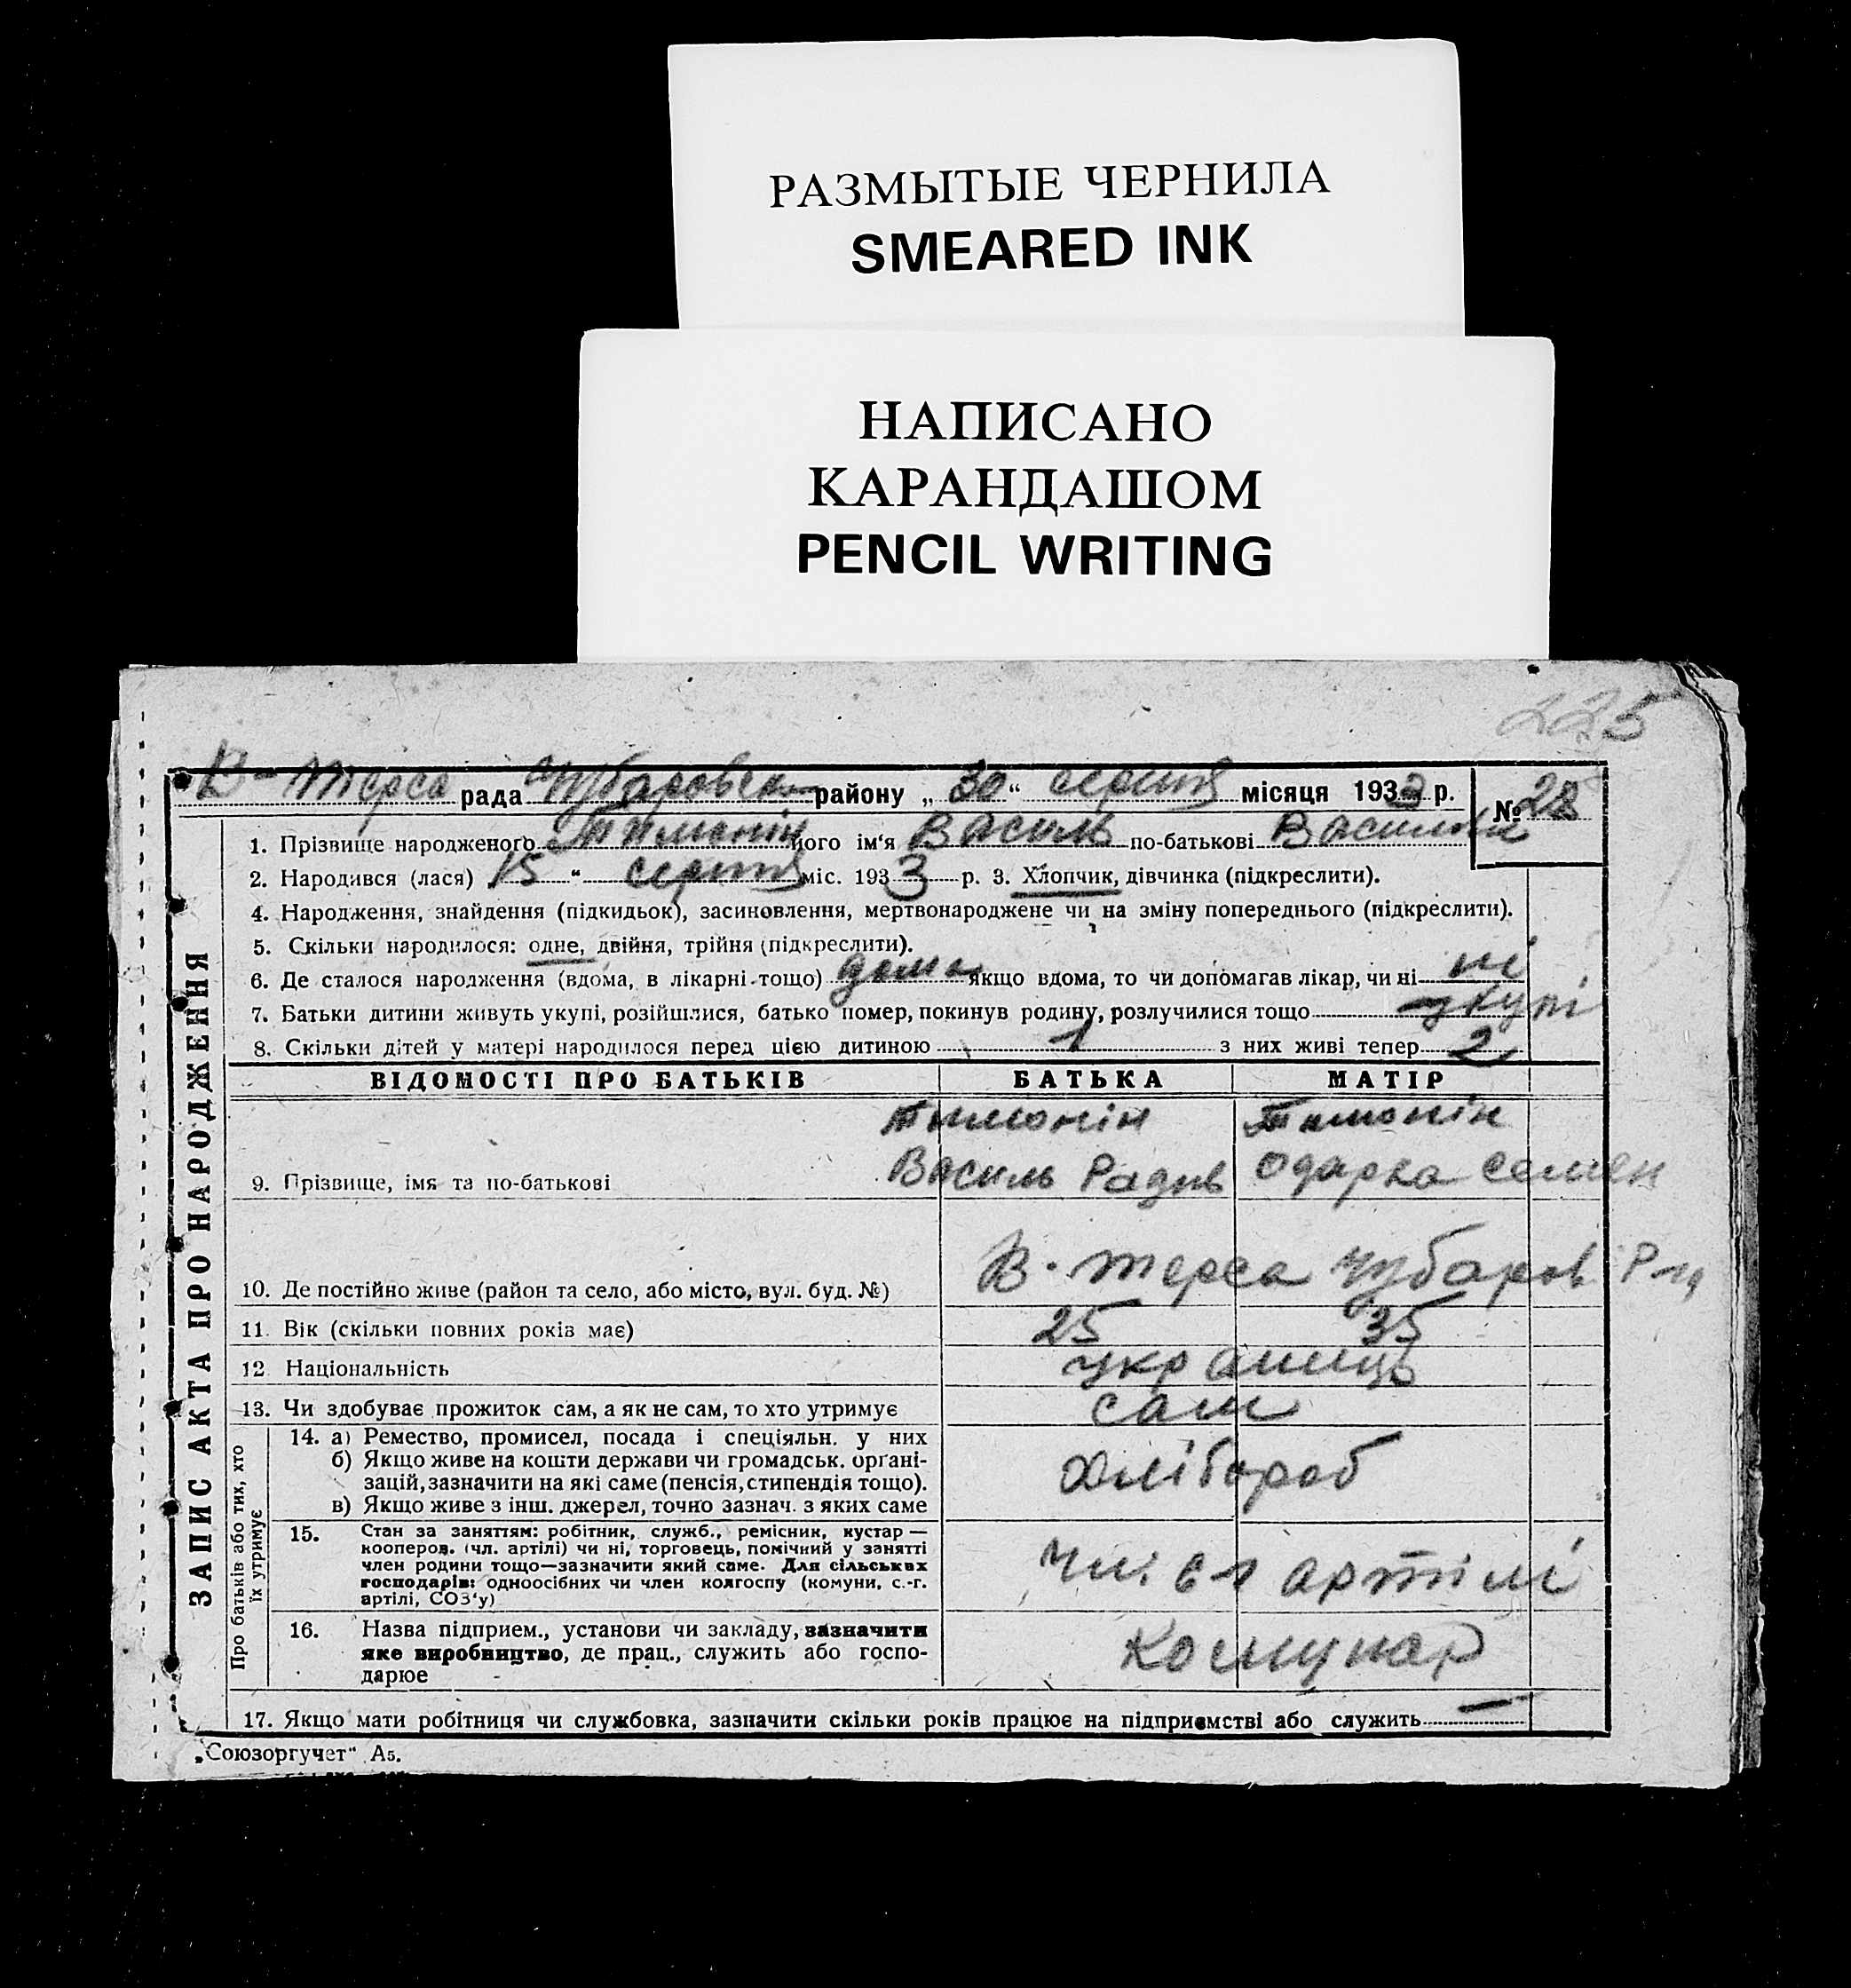 РАЗМЫТЫЕ ЧЕРНИЛА
SMEARED INK
НАПИСАНО
КАРАНДАШОМ
PENCIL WRITING
225
В-Терса рада Чубаровськ району „30“ серпня місяця 1933 р. № 28
ЗАПИС АКТА ПРО НАРОДЖЕННЯ
1. Прізвище народженого Тимонін його ім'я Василь по-батькові
2. Народився (лася) 15 “ серпня міс. 1933 р. 3. Хлопчик, дівчинка (підкреслити).
4. Народження, знайдення (підкидьок), засиновлення, мертвонароджене чи на зміну попереднього (підкреслити).
5. Скільки народилося: одне, двійня, трійня (підкреслити).
6. Де сталося народження (вдома, в лікарні тощо) дома якщо вдома, то чи допомагав лікар, чи ні ні
7. Батьки дитини живуть укупі, розійшлися, батько помер, покинув родину, розлучилися тощо укупі
8. Скільки дітей у матері народилося перед цією дитиною 1 з них живі тепер 2
ВІДОМОСТІ ПРО БАТЬКІВ БАТЬКА МАТІР
Тимонін Тимонін
9. Прізвище, імя та по-батькові Василь Одарка Семен
10. Де постійно живе (район та село, або місто, вул. буд. №) В-Терса Чубаров
11. Вік (скільки повних років має) 25 35
12 Національність українць
13. Чи здобуває прожиток сам, а як не сам, то хто утримує сам
Про батьків або тих, хто
їх утримує
14. а) Ремество, промисел, посада і спеціяльн. у них
б) Якщо живе на кошти держави чи громадськ. органі-
зацій, зазначити на які саме (пенсія, стипендія тощо).
в) Якщо живе з інш. джерел, точно зазнач. з яких саме
хлібороб
15. Стан за заняттям: робітник, служб., ремісник, кустар —
кооперов. (чл. артілі) чи ні, торговець, помічний у занятті
член родини тощо—зазначити який саме. Для сільських
господарів: одноосібних чи член колгоспу (комуни, с.-г.
артілі, СОЗ'у)
артілі
16. Назва підприєм., установи чи закладу, зазначити
яке виробництво, де прац., служить або госпо-
дарює
Комунар
17. Якщо мати робітниця чи службовка, зазначити скільки років працює на підприємстві або служить —
„Союзоргучет“ А5.